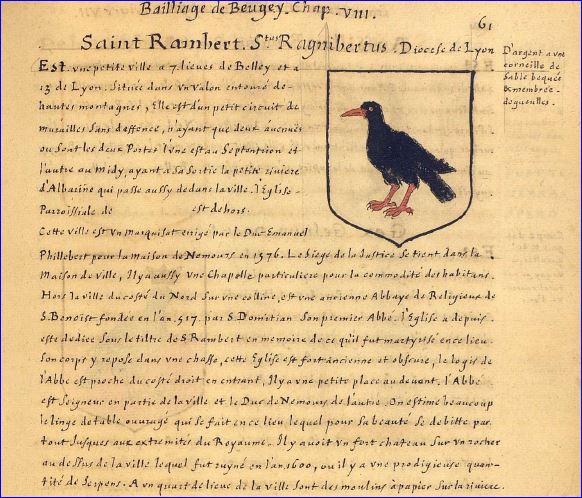 Bailliage de Beugey. Chap. VIII.
61
Saint Rambert. S.tus Ragnibertus. Diocese de Lyon
D'argent a vne
corneille de
sable bequée
& membrée
de gueulles.
Est vne petite ville a 7. lieues de Belley et a
13 de Lyon. Située dans vn valon entouré de
hautes montagnes, Elle est d'un petit circuit de
murailles sans deffence, n'ayant que deux avenues
ou sont les deux Portes l'vne est au Septentrion et
l'autre au Midy, ayant a sa sortie la petite riviere
d'Albarine qui passe aussy dedans la ville. l'Eglise
Parroissiale de est dehors.
Cette ville est vn marquisat erigé par le Duc Emanuel
Phillebert pour la maison de Nemours en 1576. Le siege de la Justice se tient dans la
maison de ville, Il y a aussy vne Chapelle particuliere pour la commodité des habitans.
Hors la ville du costé du Nord sur vne colline, est vne ancienne Abbaye de Religieux de
S. Benoist fondée en l'an. 517. par S. Domitian son premier Abbé. l'Eglise a depuis
este dediée sous le tiltre de S. Rambert en memoire de ce qu'il fut martyrisé en ce lieu.
Son corp y repose dans vne chasse, cette Eglise est fort ancienne et obscure, le logis de
l'Abbé est proche du costé droit en entrant, Il y a vne petite place au devant. l'Abbé
est Seigneur en partie de la ville et le Duc de Nemours de l'autre. On estime beaucoup
le linge de table ouuragé qui se fait en ce lieu lequel pour sa beauté se debite par
tout jusques aux extremités du Royaume. Il y auoit vn fort chateau sur vn rocher
au dessus de la ville lequel fut ruyné en l'an. 1600, ou il y a vne prodigieuse quan-
tité de serpens. A vn quart de lieue de la ville sont des moulins à papier sur la riuiere.